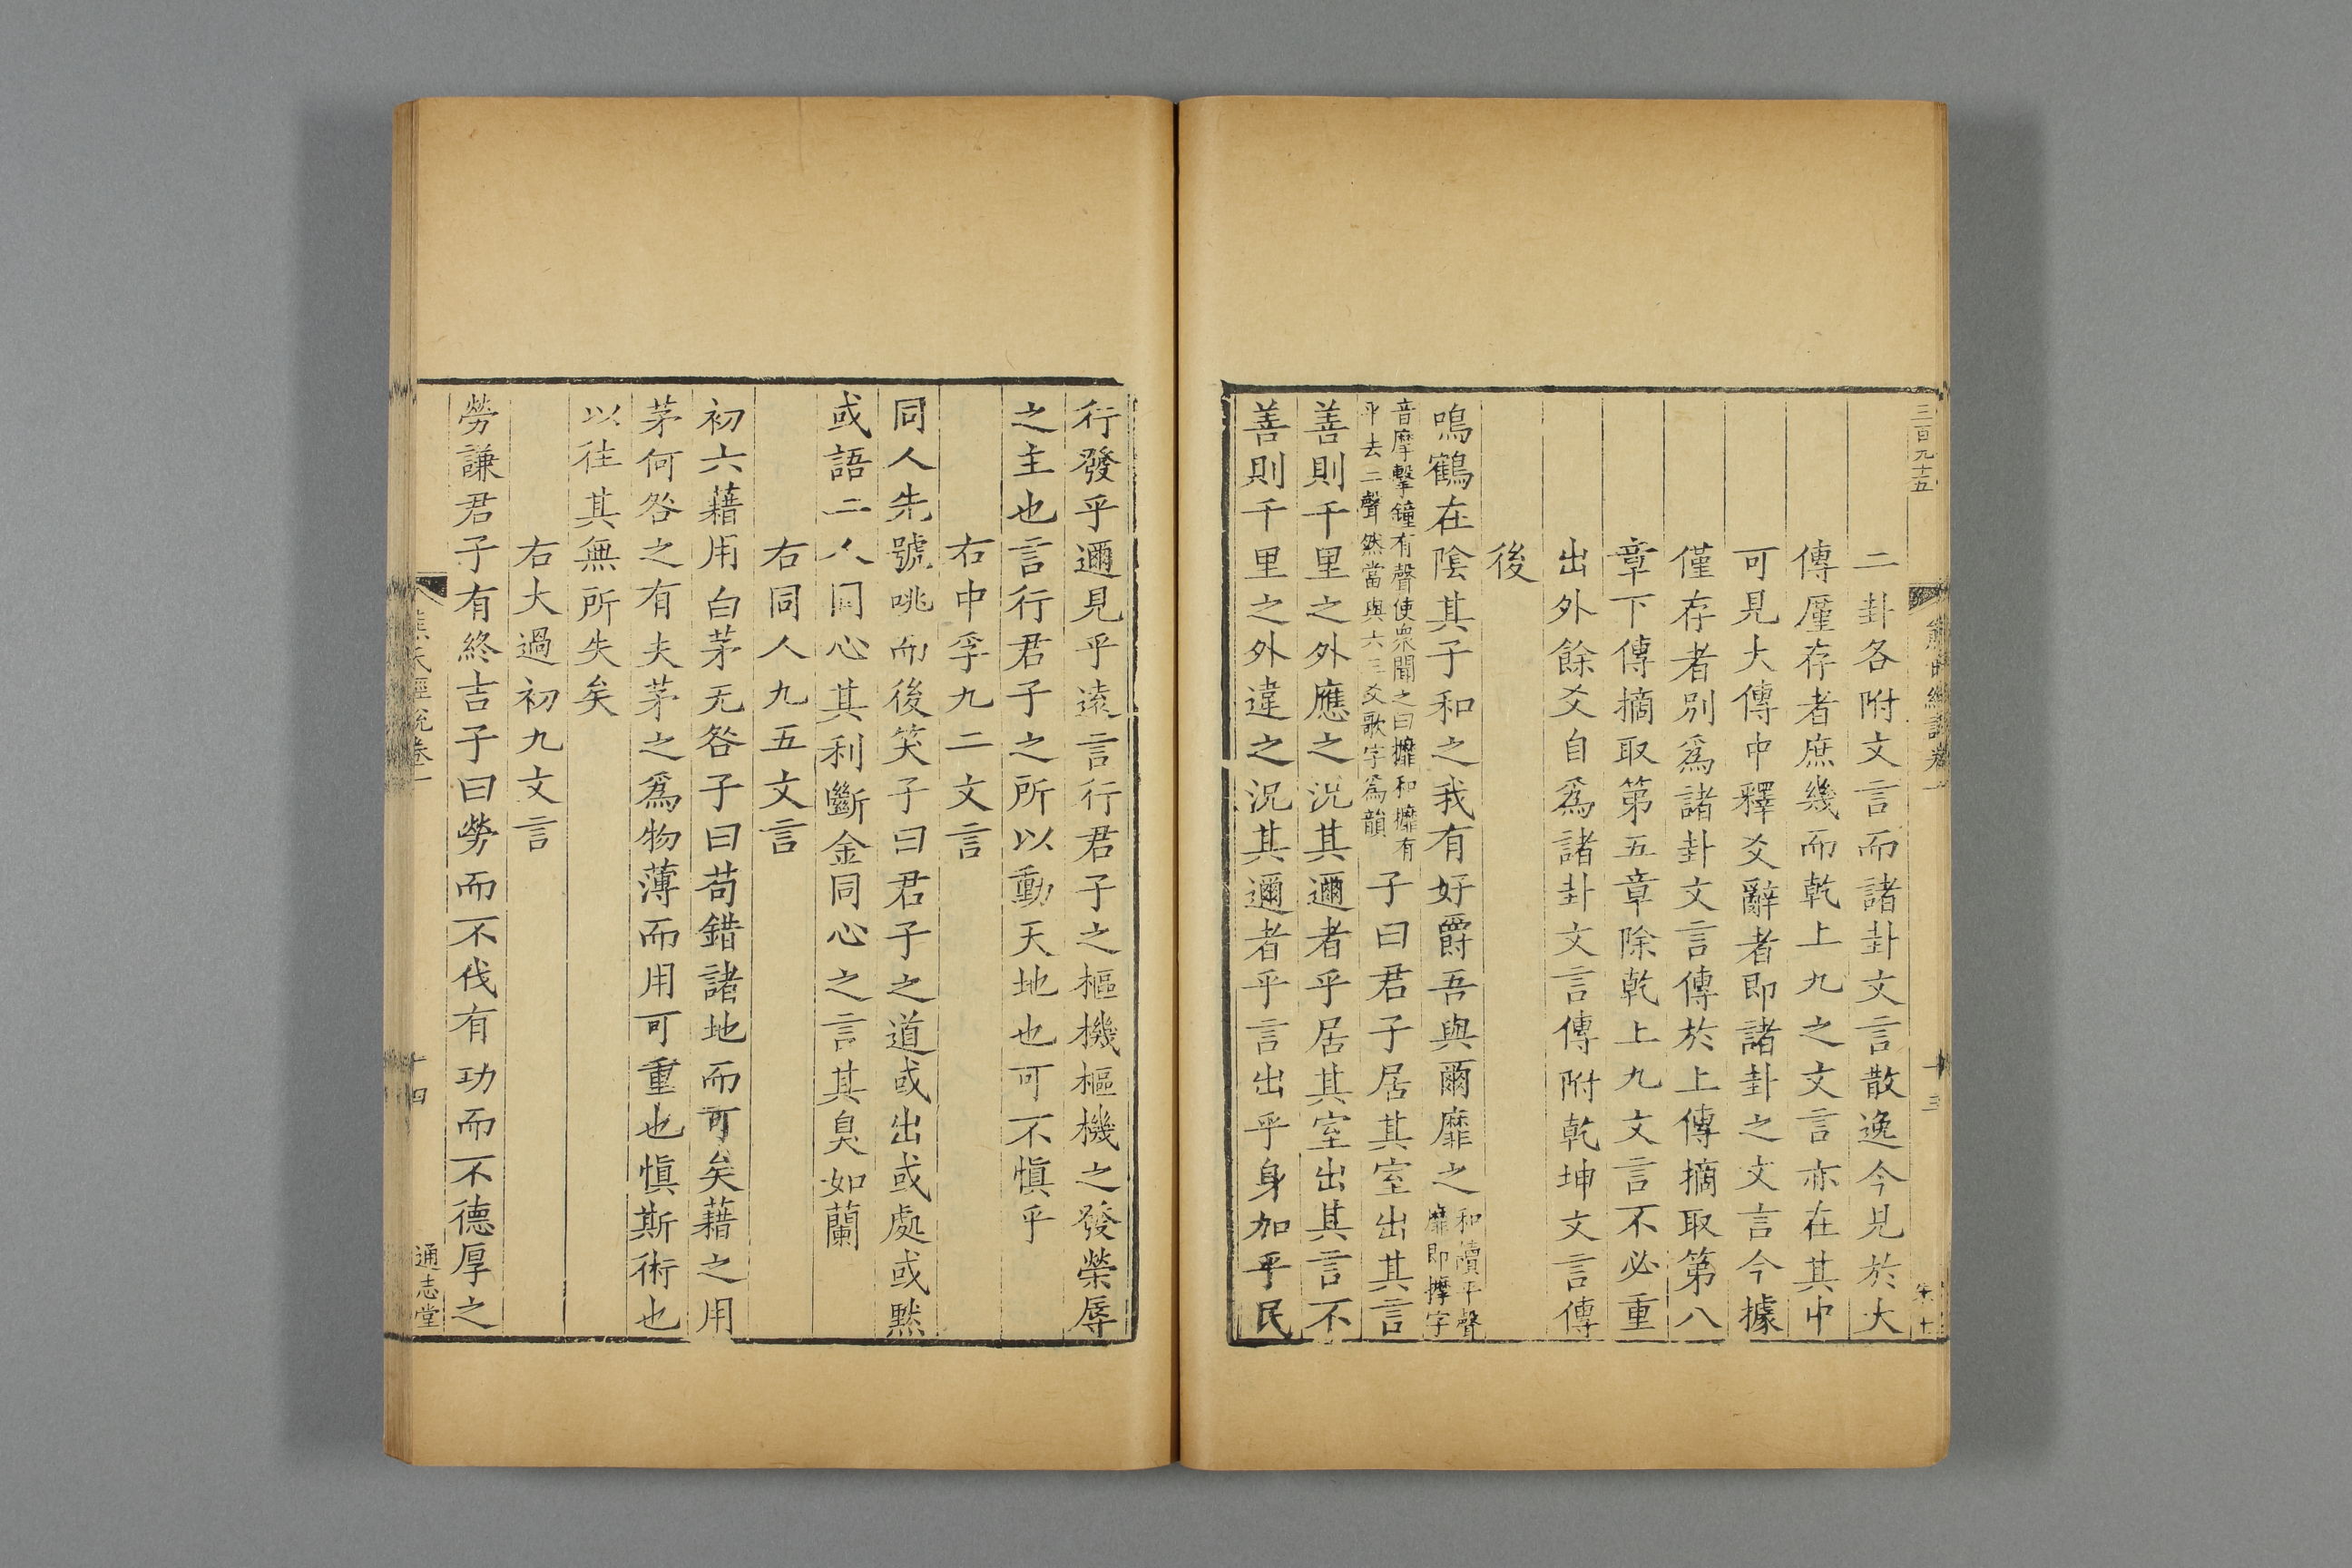 三百九十五
二卦各附文言而諸卦文言散逸今見於大
傳厪存者庶幾而乾上九之文言亦在其中
可見大傳中釋爻辭者即諸卦之文言今據
僅存者別爲諸卦文言傳於上傳摘取第八
章下傳摘取第五章除乾上九文言不必重
出外餘爻自爲諸卦文言傳附乾坤文言傳
後
鳴鶴在陰其子和之我有好爵吾與爾靡之和讀平聲靡即摩字
音摩擊鐘有聲使衆聞之曰攠和攠有平去二聲然當與六三爻歌字爲韻子曰君子居其室出其言
善則千里之外應之況其邇者乎居其室出其言不
善則千里之外違之況其邇者乎言出乎身加乎民
熊氏經說卷一
十三
行發乎邇見乎遠言行君子之樞機樞機之發榮辱
之主也言行君子之所以動天地也可不愼乎
右中孚九二文言
同人先號咷而後笑子曰君子之道或出或處或默
或語二人同心其利斷金同心之言其臭如蘭
右同人九五文言
初六藉用白茅无咎子曰苟錯諸地而可矣藉之用
茅何咎之有夫茅之爲物薄而用可重也愼斯術也
以往其無所失矣
右大過初九文言
勞謙君子有終吉子曰勞而不伐有功而不德厚之
熊氏經說卷一
十四
通志堂